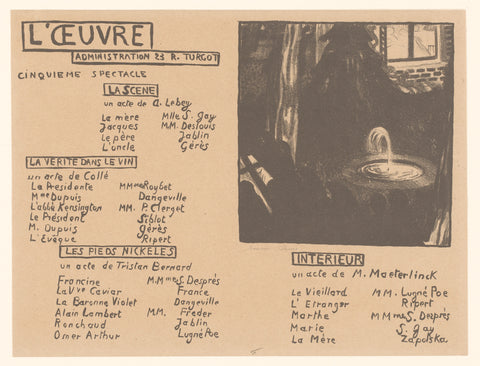 L'ŒUVRE
ADMINISTRATION 23 R. TURGOT
CINQUIEME SPECTACLE
LA SCENE
un acte de A. Lebey
La mère Mlle S. Gay
Jacques MM. Deslouis
Le père Jablin
L'uncle Gérès
LA VERITE DANS LE VIN
un acte de Collé
La Presidente MMmes Roybet
Mme Dupuis Dangeville
L'abbé Kensington MM. P. Clerget
Le Président Siblot
M. Dupuis Gérès
L'Evêque Ripert
LES PIEDS NICKELES
un acte de Tristan Bernard
Francine M.Mmes S. Desprès
La Vve Caviar France
La Baronne Violet Dangeville
Alain Lambert MM. Freder
Ronchaud Jablin
Omer Arthur Lugné Poe
INTERIEUR
un acte de M. Maeterlinck
Le Vieillard MM. Lugné Poe
L'Etranger Ripert
Marthe MMmes S. Desprès
Marie S. Gay
La Mère Zapolska